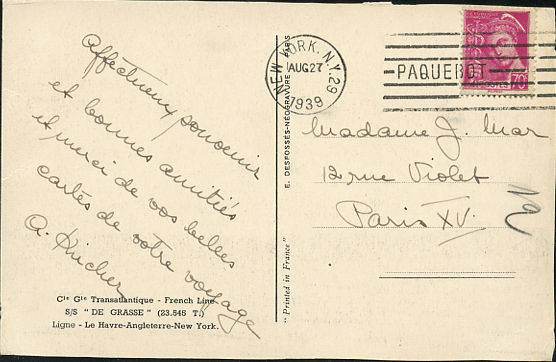 Affectueux souvenir
et bonnes amitiés
et merci de vos belles
cartes de votre voyage
A.
Cie Gle Transatlantique - French Line
S/S " DE GRASSE " (23.545 T.)
Ligne - Le Havre-Angleterre-New York.
E. DESFOSSÉS-NÉOGRAVURE PARIS
" Printed in France "
NEW YORK, N.Y. 29
AUG 27
1939
PAQUEBOT
POSTES 70
Madame J. Mar
12 rue Violet
Paris XV.